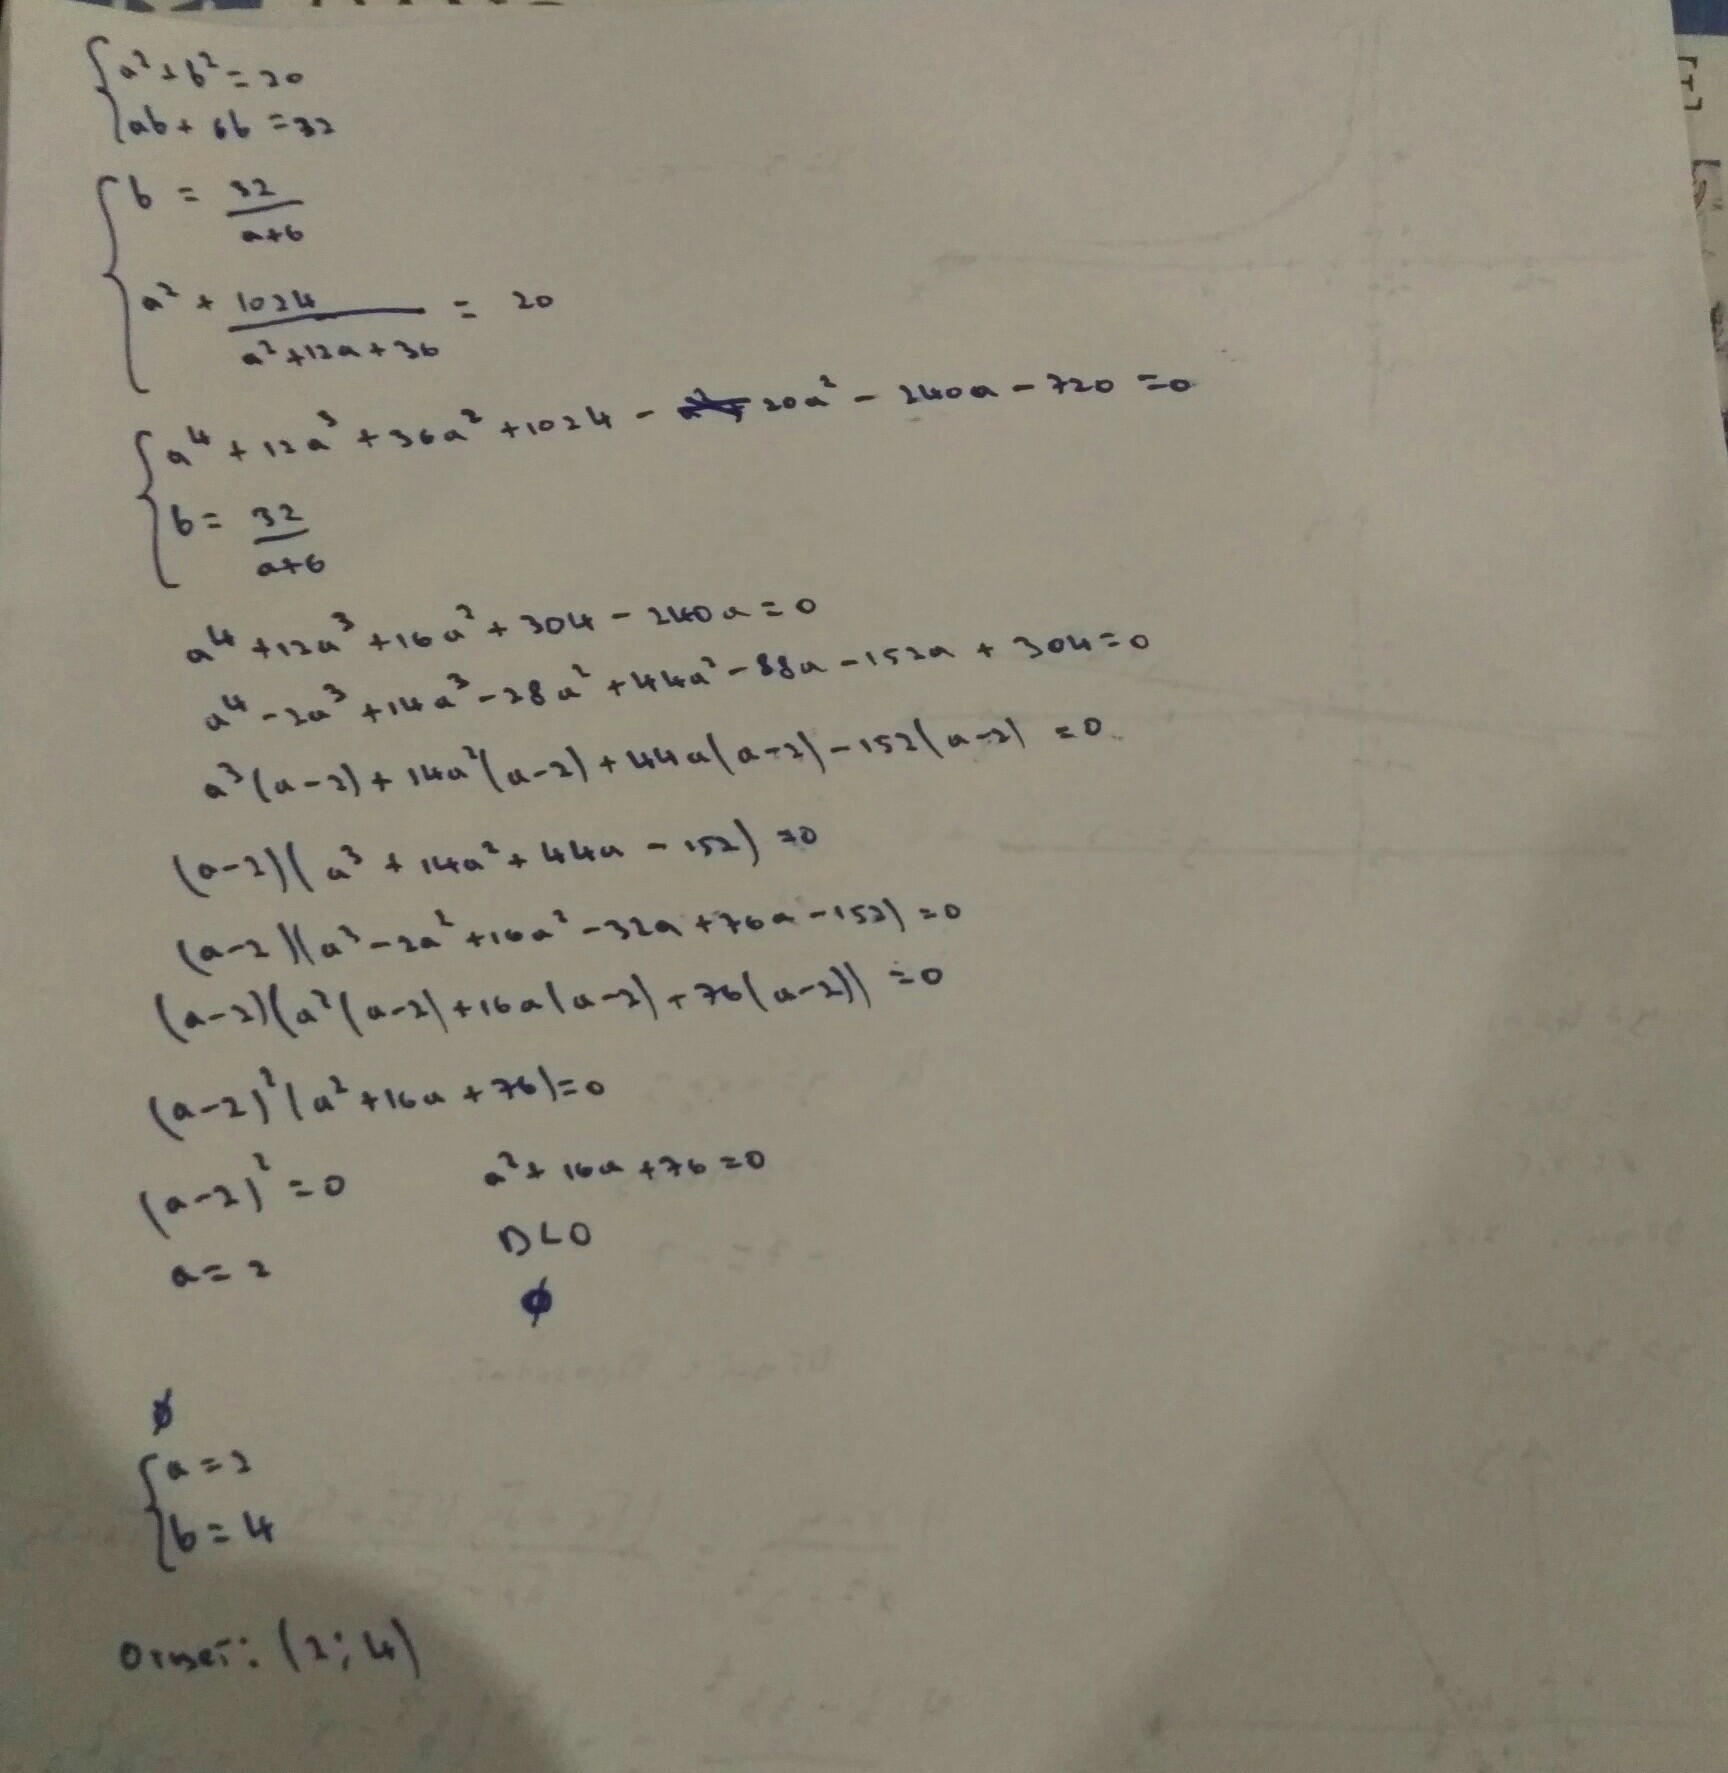 a² + b² = 20
ab + 6b = 32
b = 32/(a+6)
a² + 1024/(a²+12a+36) = 20
a⁴ + 12a³ + 36a² + 1024 - 20a² - 240a - 720 = 0
b = 32/(a+6)
a⁴ + 12a³ + 16a² + 304 - 240a = 0
a⁴ - 2a³ + 14a³ - 28a² + 44a² - 88a - 152a + 304 = 0
a³(a-2) + 14a²(a-2) + 44a(a-2) - 152(a-2) = 0
(a-2)(a³ + 14a² + 44a - 152) = 0
(a-2)(a³ - 2a² + 16a² - 32a + 76a - 152) = 0
(a-2)(a²(a-2) + 16a(a-2) + 76(a-2)) = 0
(a-2)²(a² + 16a + 76) = 0
(a-2)² = 0 a² + 16a + 76 = 0
a = 2 D<0
∅
a = 2
b = 4
Ответ: (2; 4)